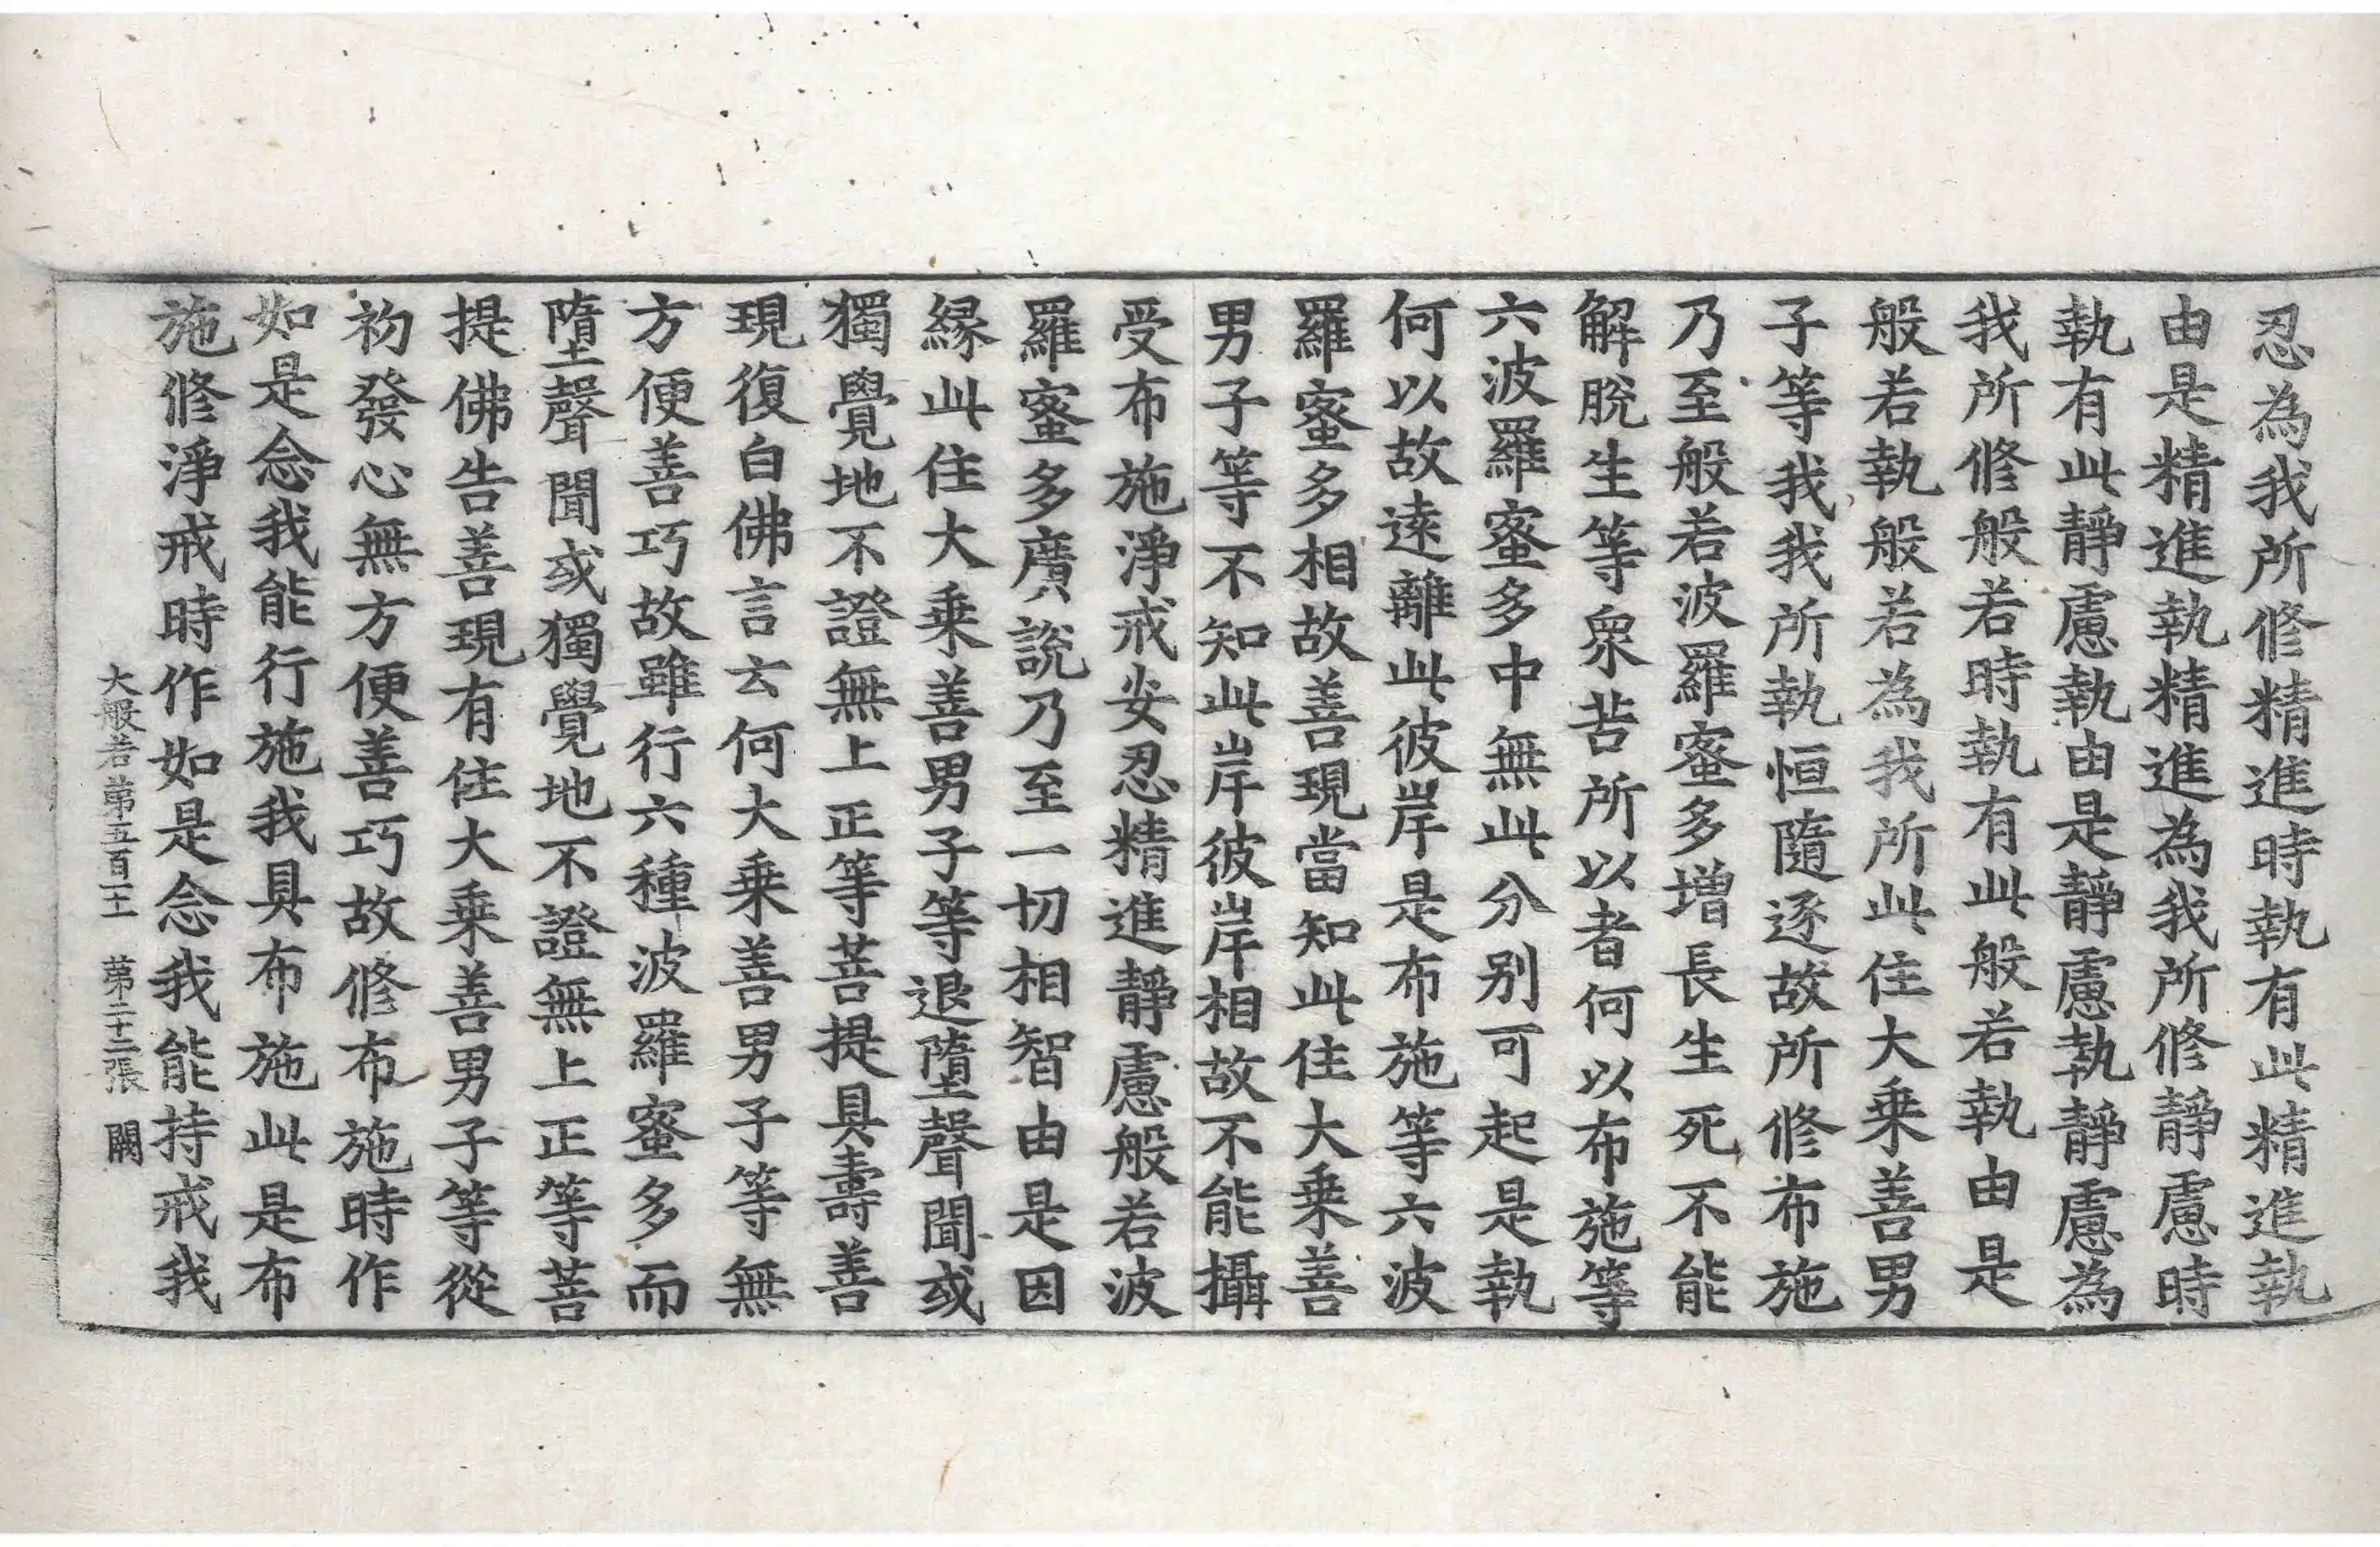 忍為我所修精進時執有此精進執
由是精進執精進為我所修靜慮時
執有此靜慮執由是靜慮執靜慮為
我所修般若時執有此般若執由是
般若執般若為我所此住大乗善男
子等我我所執恒隨逐故所修布施
乃至般若波羅蜜多增長生死不能
解脫生等衆苦所以者何以布施等
六波羅蜜多中無此分别可起是執
何以故遠離此彼岸是布施等六波
羅蜜多相故善現當知此住大乗善
男子等不知此岸彼岸相故不能攝
受布施淨戒安忍精進靜慮般若波
羅蜜多廣說乃至一切相智由是因
縁此住大乗善男子等退墮聲聞或
獨覺地不證無上正等菩提具壽善
現復白佛言云何大乗善男子等無
方便善巧故雖行六種波羅蜜多而
墮聲聞或獨覺地不證無上正等菩
提佛告善現有住大乗善男子等從
初發心無方便善巧故修布施時作
如是念我能行施我具布施此是布
施修淨戒時作如是念我能持戒我
大般若第五百一十一 第二十三張 闕